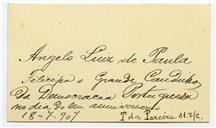 Angelo Luiz de Paula
Felicipa o Grande Caudilho
Da Democracia Portugueza
no dia do seu anniversario
18-7-907
Pereira